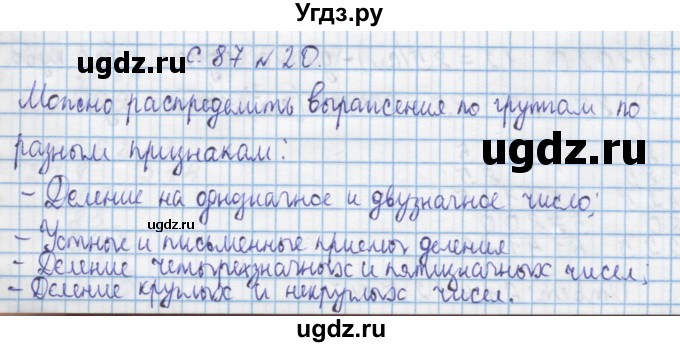 Угдз.ру
с. 87 № 20.
ugdz.ru
Можно распределить выражения по группам по
ugdz.ru
разным признакам:
ugdz.ru
- Деление на однозначное и двузначное число;
- Устные и письменные приемы деления
ugdz.ru
- Деление четырехзначных и пятизначных чисел;
- Деление круглых и некруглых чисел.
ugdz.ru